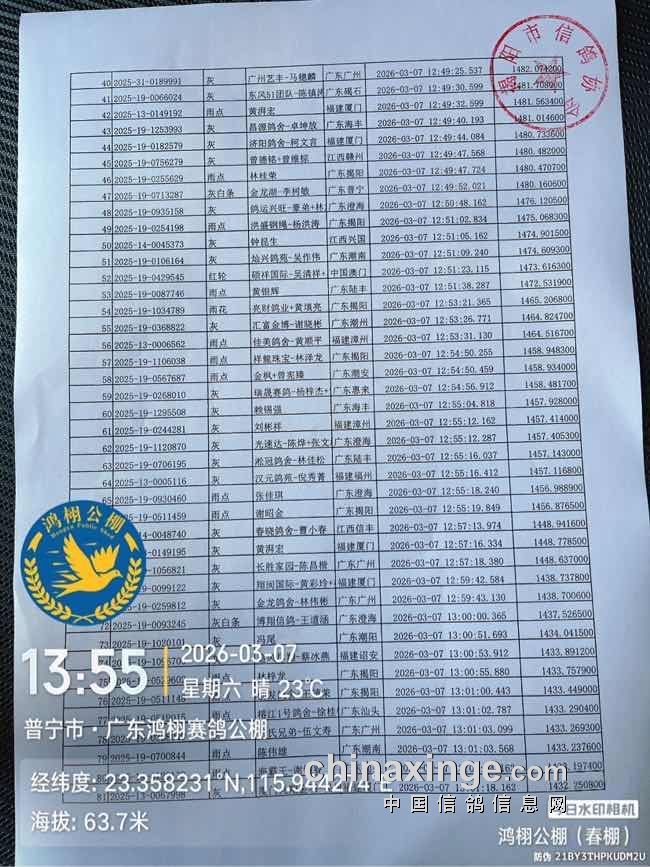 40 2025-31-0189991 灰 广州艺丰-马穗麟 广东广州 2026-03-07 12:49:25.537 1482.074200
41 2025-19-0066024 灰 东风51团队-陈镇鸿 广东碣石 2026-03-07 12:49:30.599 1481.708900
42 2025-13-0149192 雨点 黄湃宏 福建厦门 2026-03-07 12:49:32.599 1481.563400
43 2025-19-1253993 灰 昌源鸽舍-卓坤放 广东海丰 2026-03-07 12:49:40.193 1481.014600
44 2025-19-0182579 灰 济阳鸽舍-柯文言 福建厦门 2026-03-07 12:49:44.084 1480.733600
45 2025-19-0756279 灰 曾德铭+曾维棕 江西赣州 2026-03-07 12:49:47.568 1480.482000
46 2025-19-0255629 雨点 林桂荣 广东揭阳 2026-03-07 12:49:47.724 1480.470700
47 2025-19-0713287 灰白条 金龙湖-李柯敏 广东普宁 2026-03-07 12:49:52.021 1480.160600
48 2025-19-0935158 灰 鸽运兴旺-豪弟+林 广东澄海 2026-03-07 12:50:48.162 1476.120500
49 2025-19-0254198 雨点 洪盛钢绳-杨洪涛 广东揭阳 2026-03-07 12:51:02.834 1475.068300
50 2025-14-0045373 灰 钟昆生 江西兴国 2026-03-07 12:51:05.162 1474.901500
51 2025-19-0106164 灰 灿兴鸽苑-吴作伟 广东潮南 2026-03-07 12:51:09.240 1474.609300
52 2025-19-0429545 红轮 硕祥国际-吴清祥+ 中国澳门 2026-03-07 12:51:23.115 1473.616300
53 2025-19-0087746 雨点 黄银辉 广东陆丰 2026-03-07 12:51:38.287 1472.531900
54 2025-19-1034789 雨花 亮财鸽业+黄填亮 广东揭阳 2026-03-07 12:53:21.365 1465.206800
55 2025-19-0368822 灰 汇富金博-谢晓彬 广东潮州 2026-03-07 12:53:26.771 1464.824700
56 2025-13-0006562 雨点 佳美鸽舍-黄顺平 福建漳州 2026-03-07 12:53:31.130 1464.516700
57 2025-19-1106038 雨点 祥龍珠宝-林泽龙 广东揭阳 2026-03-07 12:54:50.255 1458.948300
58 2025-19-0567687 雨点 金枫+曾宪臻 广东潮安 2026-03-07 12:54:50.459 1458.934000
59 2025-19-0268010 灰 瑞晟赛鸽-杨梓杰+ 广东惠来 2026-03-07 12:54:56.912 1458.481700
60 2025-19-1295508 灰 赖锡强 广东海丰 2026-03-07 12:55:04.818 1457.928000
61 2025-19-0244281 灰 刘彬祥 福建漳州 2026-03-07 12:55:12.162 1457.414000
62 2025-19-1120870 灰 光速达-陈烨+张文 广东澄海 2026-03-07 12:55:12.287 1457.405300
63 2025-19-0706195 灰 淞冠鸽舍-林佳松 广东陆丰 2026-03-07 12:55:16.037 1457.143000
64 2025-13-0005116 灰 汉元鸽苑-倪秀菁 福建福州 2026-03-07 12:55:16.412 1457.116800
65 2025-19-0930460 雨点 张佳琪 广东澄海 2026-03-07 12:55:18.240 1456.988900
2025-19-0511459 雨点 谢昭金 广东揭阳 2026-03-07 12:55:19.849 1456.876500
-14-0048740 灰 春晓鸽舍-曹小春 江西信丰 2026-03-07 12:57:13.974 1448.941600
-0149195 灰 黄湃宏 福建厦门 2026-03-07 12:57:16.334 1448.778500
-1056821 灰 长胜家园-陈昌楷 广东广州 2026-03-07 12:57:18.380 1448.637000
-0099122 灰 翔闽国际-黄彩玲+ 福建厦门 2026-03-07 12:59:42.584 1438.737800
2025-19-0259812 灰 金龙鸽舍-林伟彬 广东广州 2026-03-07 12:59:43.130 1438.700600
72 2025-19-0093245 灰白条 博翔信鸽-王道涵 广东澄海 2026-03-07 13:00:00.365 1437.526500
73 2025-19-1020101 灰 冯尾 广东潮阳 2026-03-07 13:00:51.693 1434.041500
蔡冰燕 福建诏安 2026-03-07 13:00:53.912 1433.891200
75 林梓龙 13:00:55.880 1433.757900
76 2025-19-0511148 13:01:00.443 1433.449000
77 榕江1号鸽舍-徐桂 广东汕头 2026-03-07 13:01:02.771 1433.290400
78 氏兄弟-伍文寿 广东广州 2026-03-07 13:01:03.099 1433.269300
79 2025-19-0700844 雨点 陈伟雄 广东潮南 2026-03-07 13:01:03.569 1433.237600
.197400
81 2025-13-0067998 1432.250800
揭阳市信鸽协会
鸿栩公棚
13:55
2026-03-07
星期六 晴 23℃
普宁市·广东鸿栩赛鸽公棚
经纬度: 23.358231°N,115.944274°E
海拔: 63.7米
chinaxinge.com
中国信鸽信息网
今日水印相机
鸿栩公棚（春棚）
防伪 21BY3THPKUDM2U